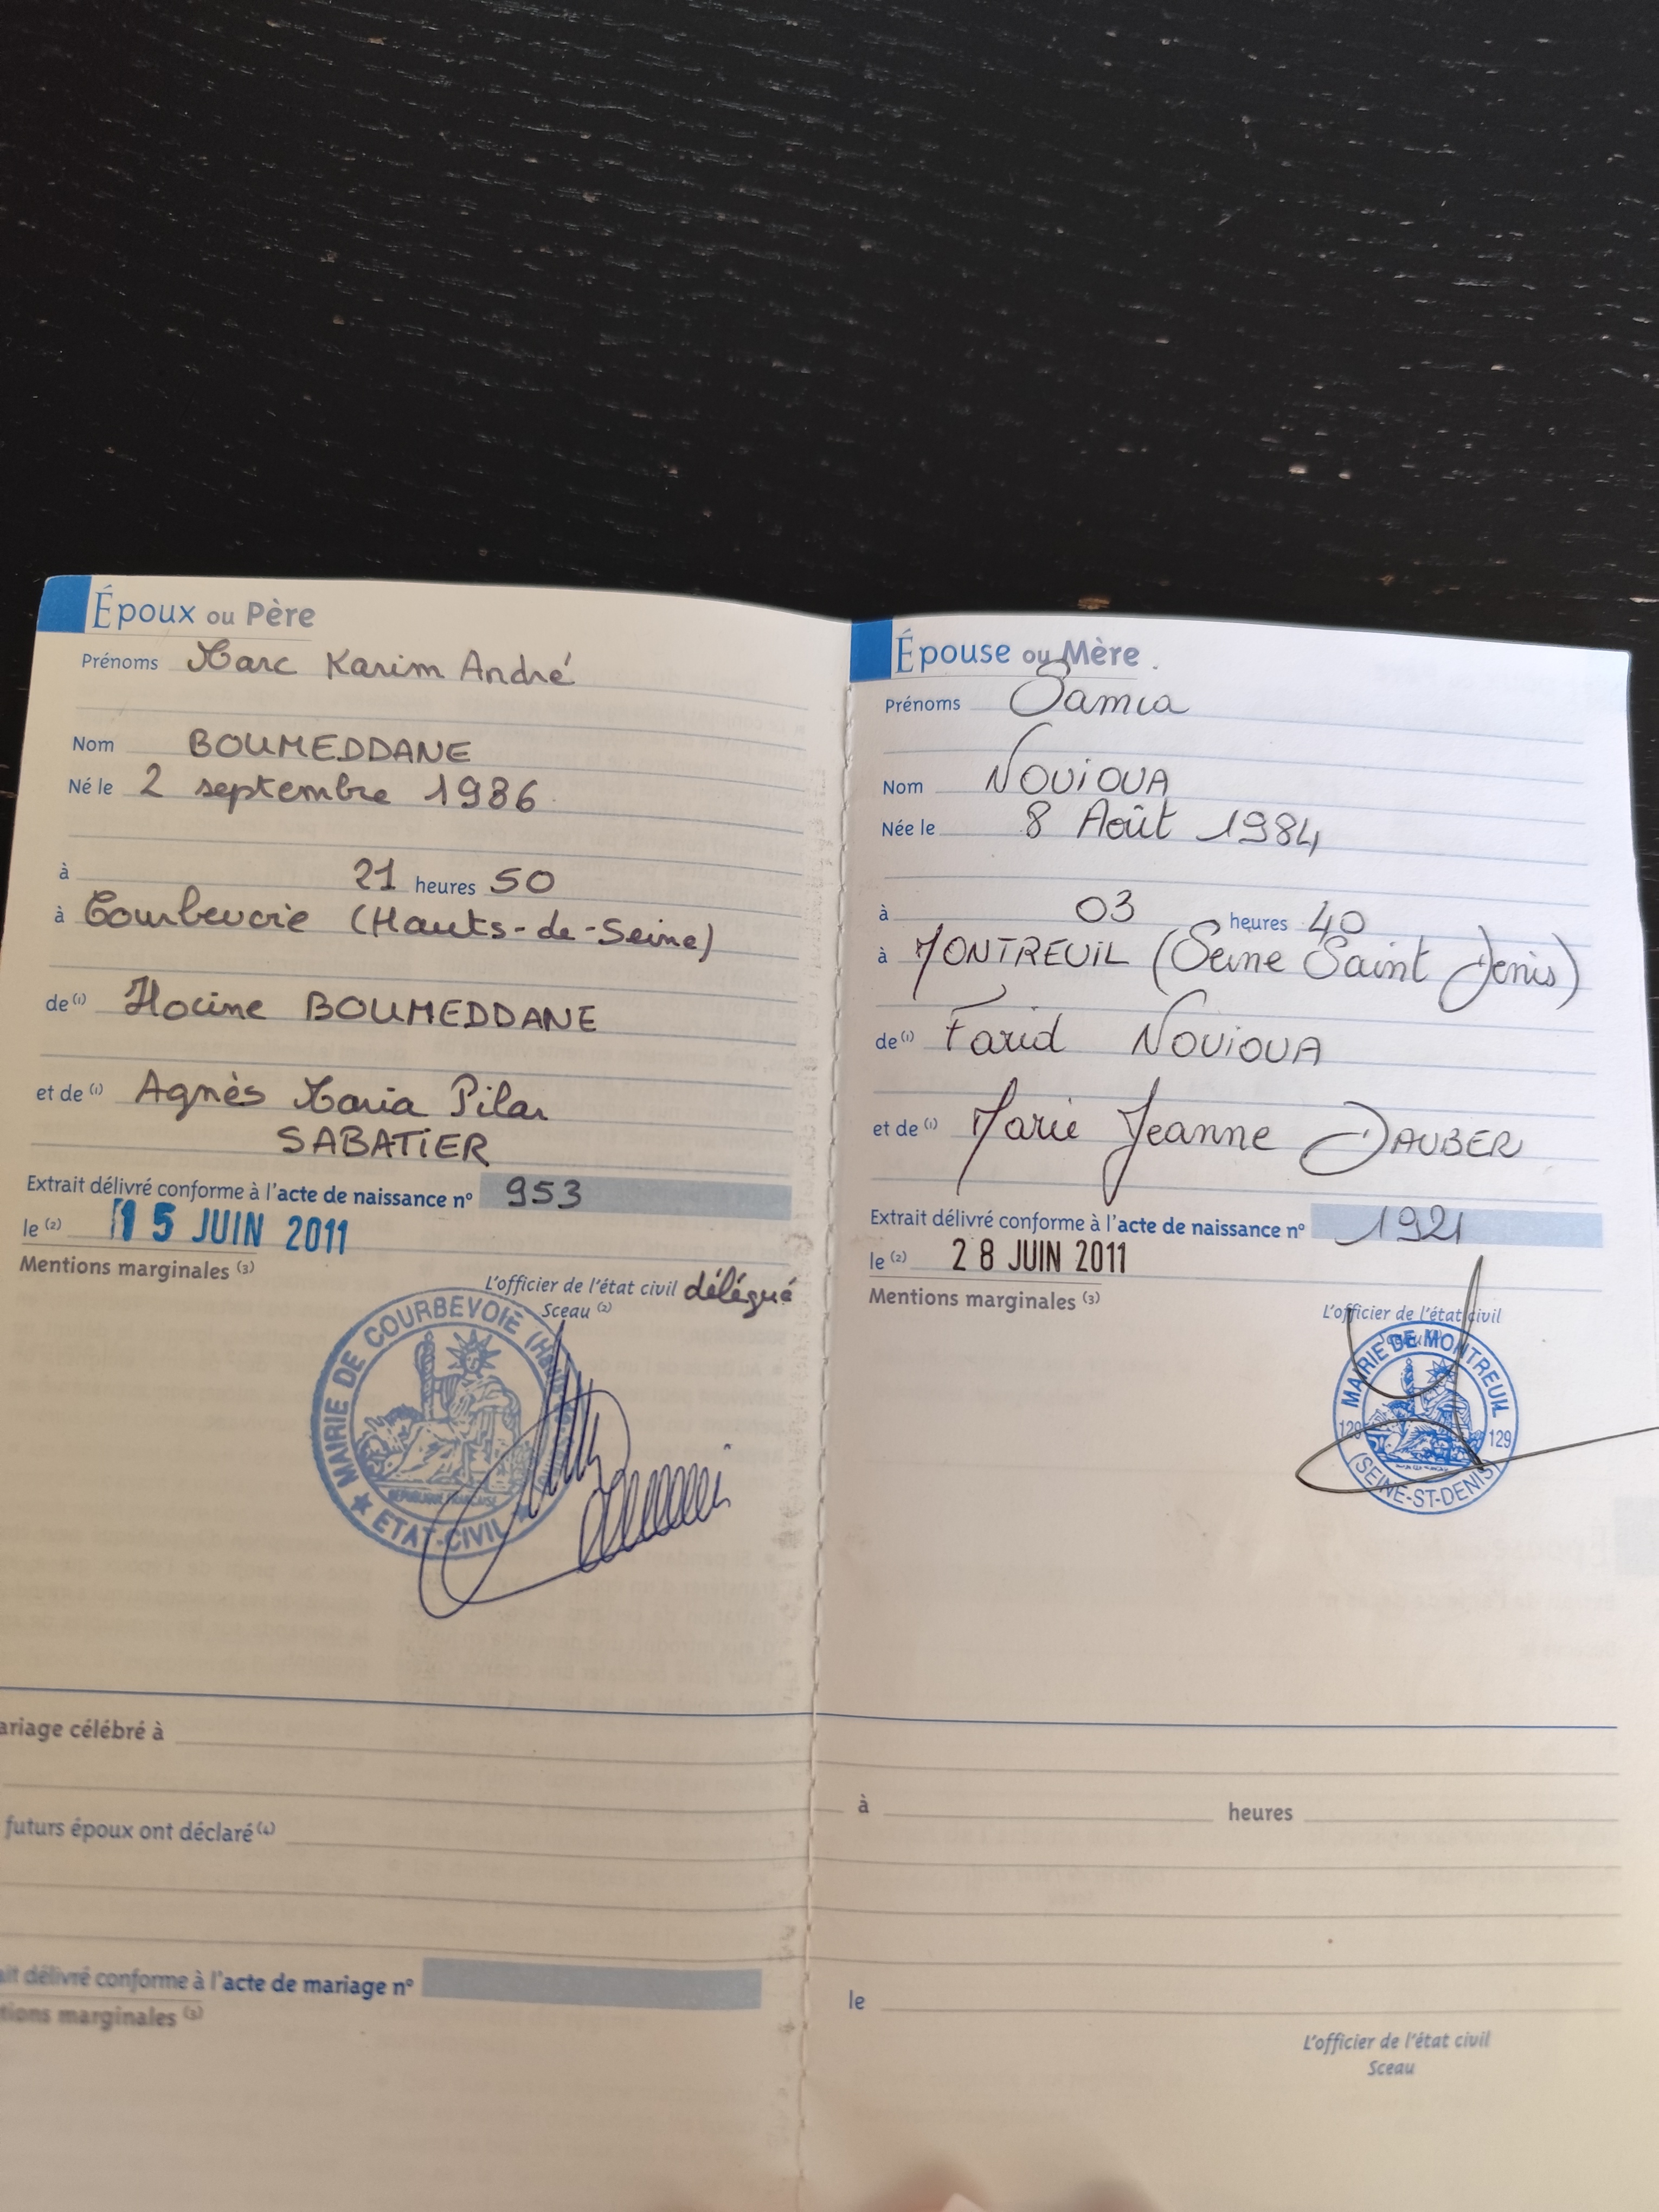 Époux ou Père
Prénoms Marc Karim André
Nom BOUMEDDANE
Né le 2 septembre 1986
à 21 heures 50
à Courbevoie (Hauts-de-Seine)
de (1) Hocine BOUMEDDANE
et de (1) Agnès Maria Pilar
SABATIER
Extrait délivré conforme à l'acte de naissance n° 953
le (2) 15 JUIN 2011
Mentions marginales (3)
L'officier de l'état civil délégué
Sceau (2)
MAIRIE DE COURBEVOIE
ETAT-CIVIL
Épouse ou Mère
Prénoms Samia
Nom NOUIOUA
Née le 8 Août 1984
à 03 heures 40
à MONTREUIL (Seine Saint Denis)
de (1) Farid NOUIOUA
et de (1) Marie Jeanne DAUBER
Extrait délivré conforme à l'acte de naissance n° 1921
le (2) 28 JUIN 2011
Mentions marginales (3)
L'officier de l'état civil
MAIRIE DE MONTREUIL
129 129
(SEINE-ST-DENIS)
ariage célébré à
à heures
futurs époux ont déclaré (4)
ait délivré conforme à l'acte de mariage n°
le
tions marginales (3)
L'officier de l'état civil
Sceau